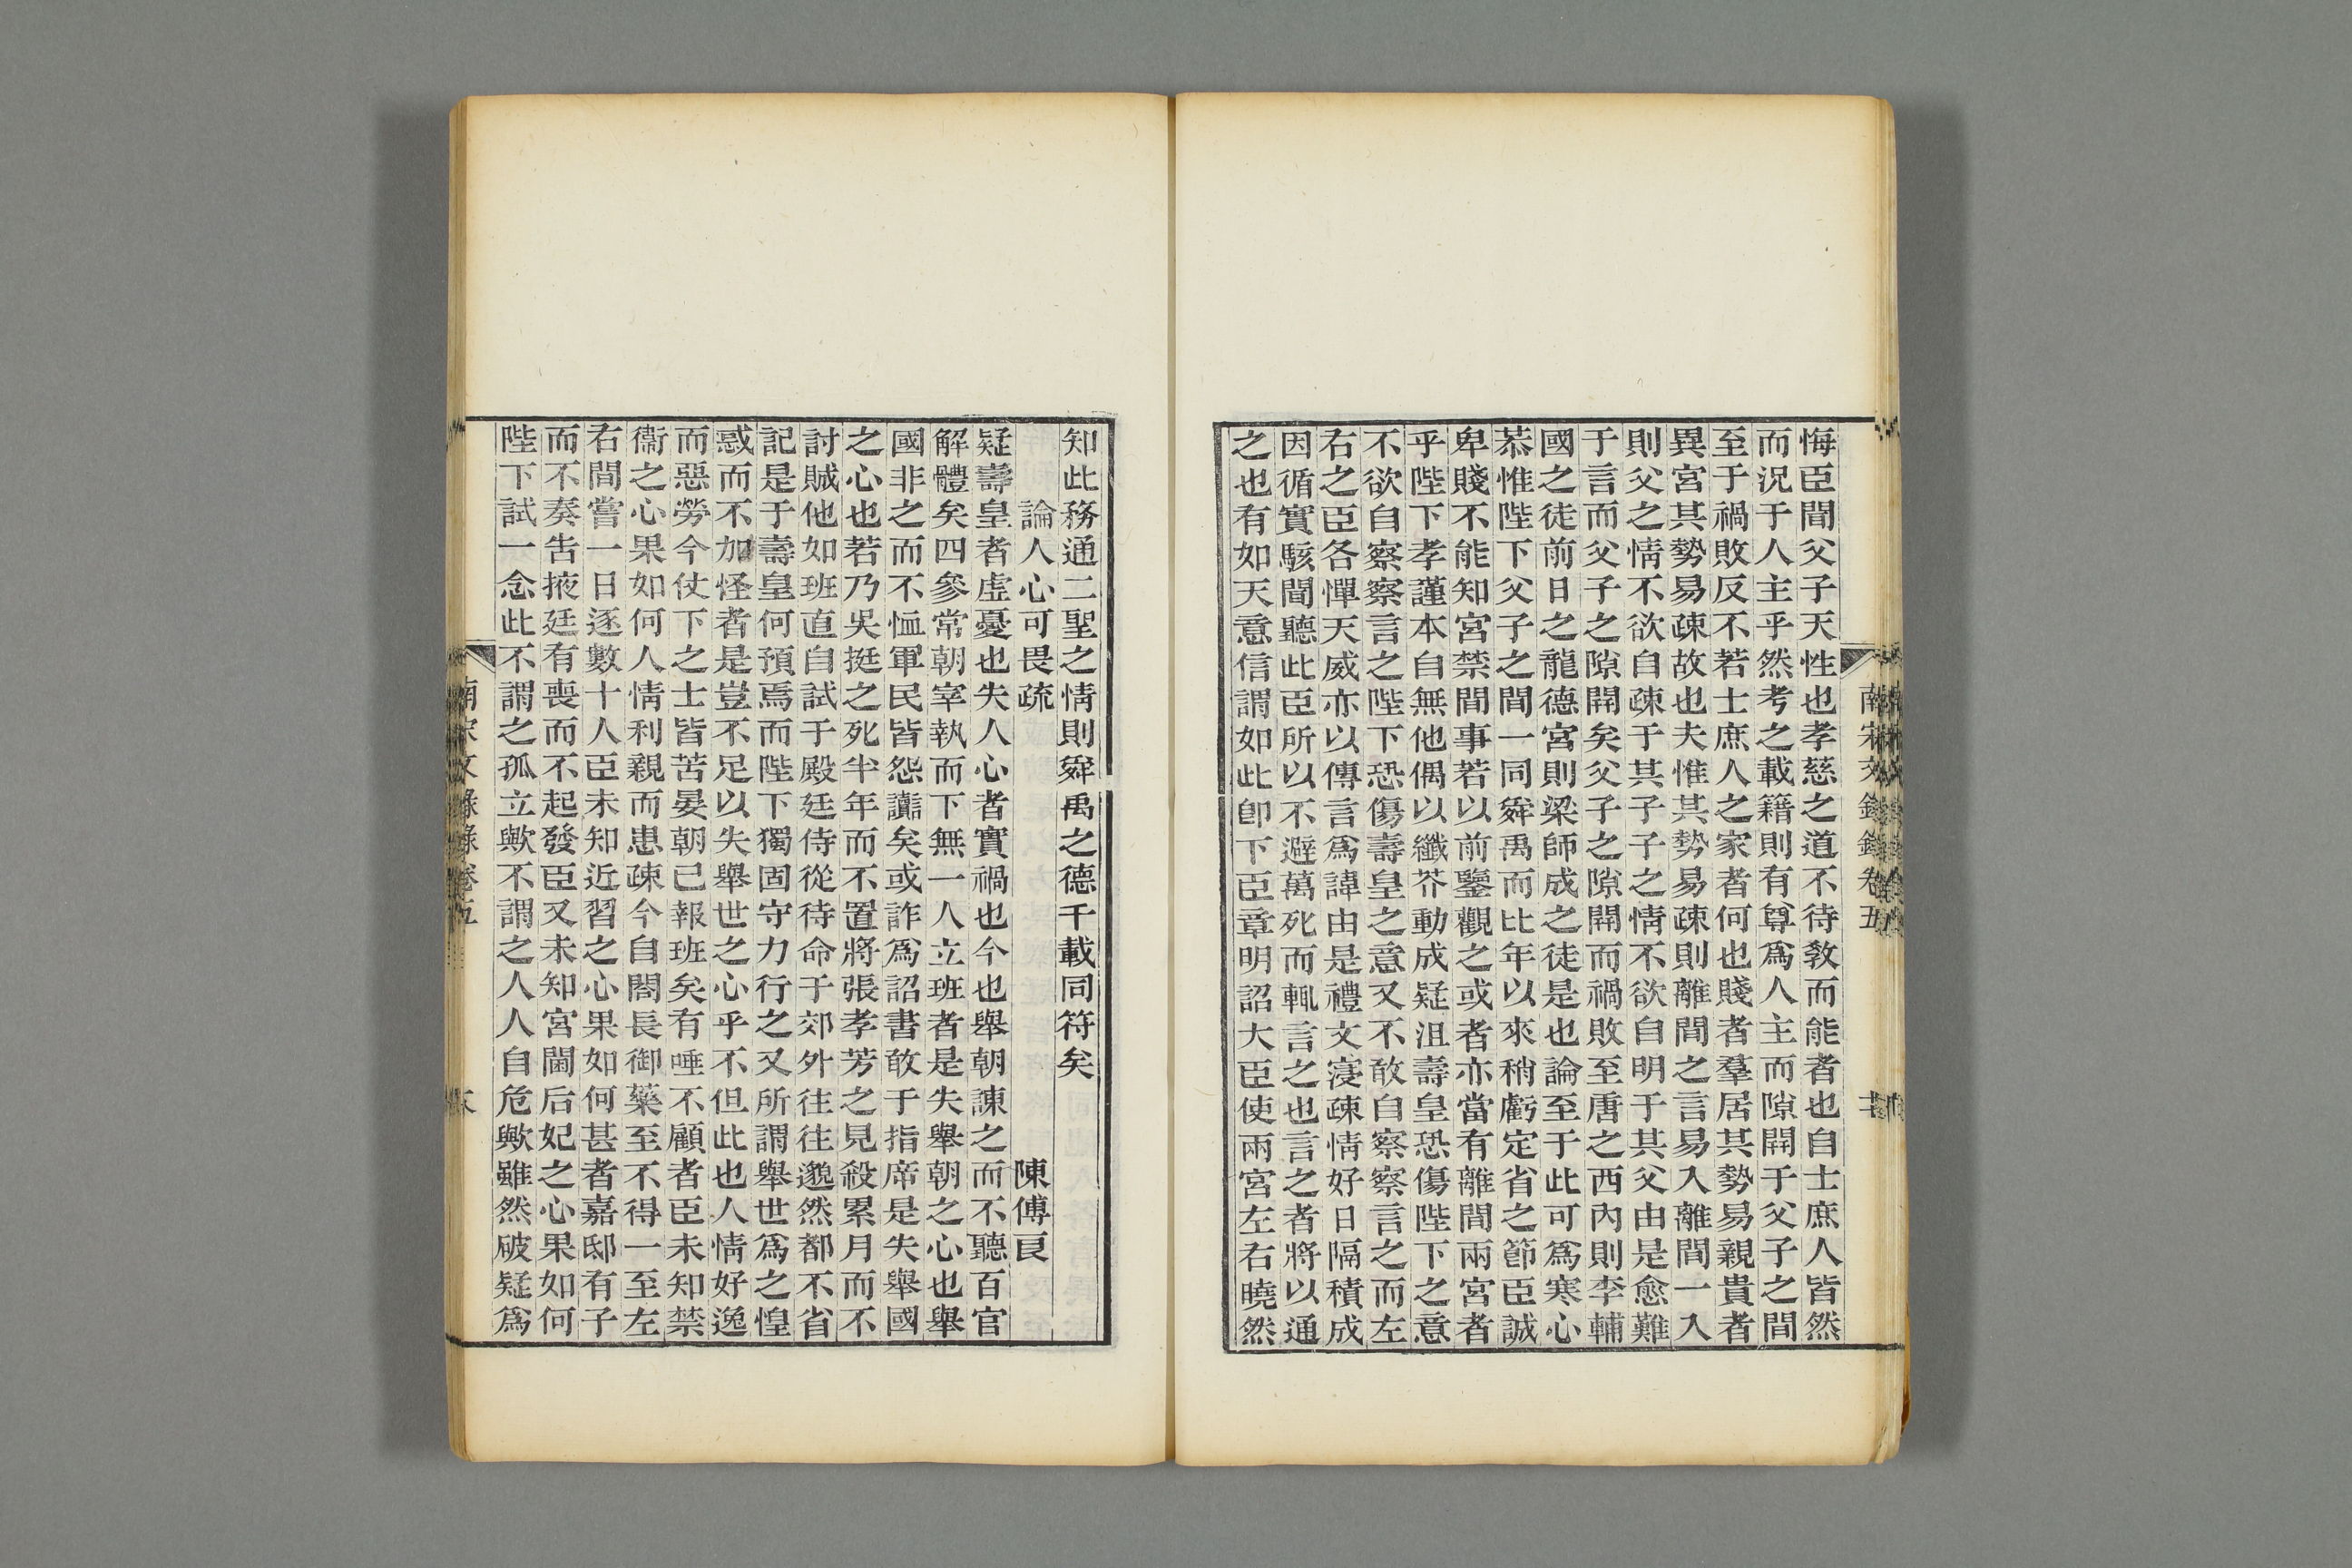 悔臣聞父子天性也孝慈之道不待教而能者也自士庶人皆然
而況于人主乎然考之載籍則有尊爲人主而隙開于父子之間
至于禍敗反不若士庶人之家者何也賤者羣居其勢易親貴者
異宮其勢易疎故也夫惟其勢易疎則離間之言易入離間一入
則父之情不欲自疎于其子子之情不欲自明于其父由是愈難
于言而父子之隙開矣父子之隙開而禍敗至唐之西內則李輔
國之徒前日之龍德宮則梁師成之徒是也論至于此可爲寒心
恭惟陛下父子之間一同舜禹而比年以來稍虧定省之節臣誠
卑賤不能知宮禁間事若以前鑒觀之或者亦當有離間兩宮者
乎陛下孝謹本自無他偶以纖芥動成疑沮壽皇恐傷陛下之意
不欲自察察言之陛下恐傷壽皇之意又不敢自察察言之而左
右之臣各憚天威亦以傳言爲諱由是禮文寖疎情好日隔積成
因循實駭聞聽此臣所以不避萬死而輒言之也言之者將以通
之也有如天意信謂如此卽下臣章明詔大臣使兩宮左右曉然
南宋文錄錄卷五
知此務通二聖之情則舜禹之德千載同符矣
論人心可畏疏　陳傅良
疑壽皇者虛憂也失人心者實禍也今也舉朝諫之而不聽百官
解體矣四參常朝宰執而下無一人立班者是失舉朝之心也舉
國非之而不恤軍民皆怨讟矣或詐爲詔書敢于指席是失舉國
之心也若乃吳挺之死半年而不置將張孝芳之見殺累月而不
討賊他如班直自試于殿廷侍從待命于郊外往往邈然都不省
記是于壽皇何預焉而陛下獨固守力行之又所謂舉世爲之惶
惑而不加怪者是豈不足以失舉世之心乎不但此也人情好逸
而惡勞今仗下之士皆苦晏朝已報班矣有唾不顧者臣未知禁
衞之心果如何人情利親而患疎今自閤長御藥至不得一至左
右間嘗一日逐數十人臣未知近習之心果如何甚者嘉邸有子
而不奏告掖廷有喪而不起發臣又未知宮闈后妃之心果如何
陛下試一念此不謂之孤立歟不謂之人人自危歟雖然破疑爲
南宋文錄錄卷五